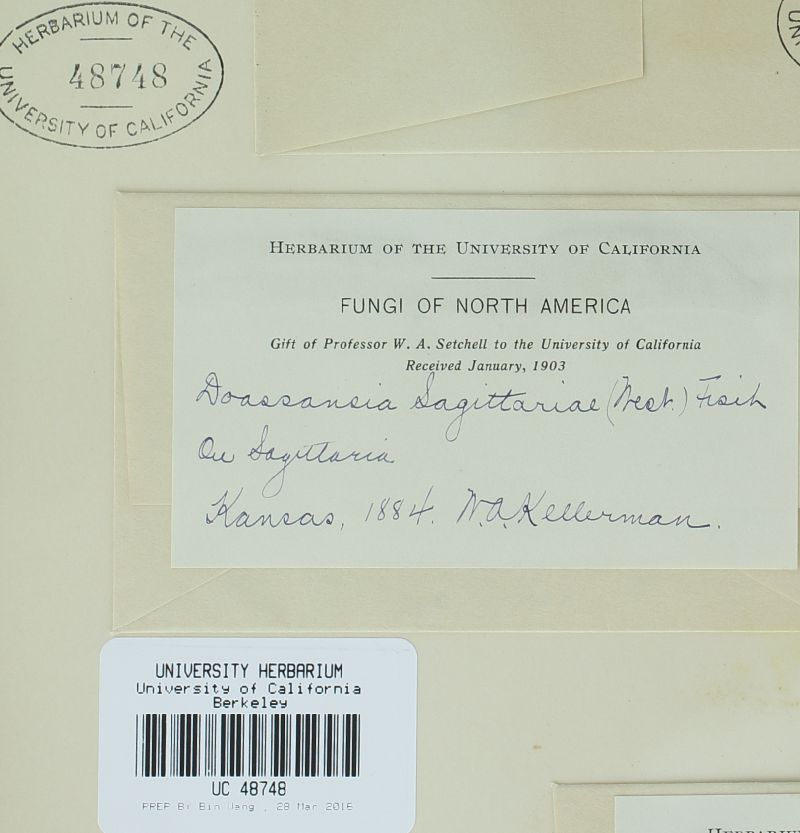 HERBARIUM OF THE
48748
UNIVERSITY OF CALIFORNIA
UN
HERBARIUM OF THE UNIVERSITY OF CALIFORNIA
FUNGI OF NORTH AMERICA
Gift of Professor W. A. Setchell to the University of California
Received January, 1903
Doassansia Sagittariae (West.) Fisch
On Sagittaria
Kansas, 1884. W.A. Kellerman.
UNIVERSITY HERBARIUM
University of California
Berkeley
UC 48748
PREP BY Bin Wang , 28 Mar 2016